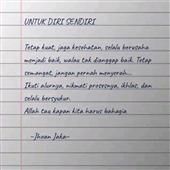 UNTUK DIRI SENDIRI
Tetap kuat, jaga kesehatan, selalu berusaha
menjadi baik, walau tak dianggap baik. Tetap
semangat, jangan pernah menyerah...
Ikuti alurnya, nikmati prosesnya, ikhlas, dan
selalu bersyukur.
Allah tau kapan kita harus bahagia
~Jhoan Jaka~